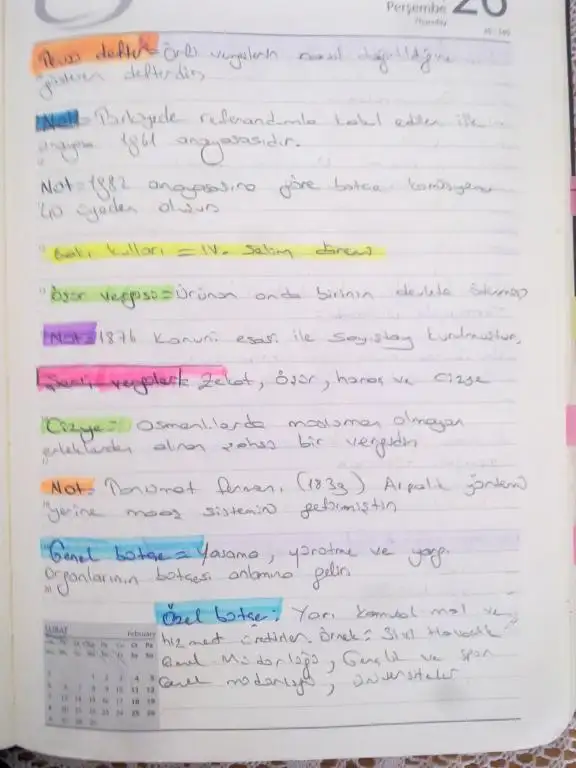 Perşembe 26
Thursday
defter = Örfi vergilerin nasıl dağıtıldığını
gösteren defterdir
Not: Türkiyede referandumla kabul edilen ilk
anayasa 1961 anayasasıdır.
Not = 1982 anayasasına göre bütçe komisyonu
40 üyeden oluşur
kulları = IV. dönemi
Öşür vergisi = Ürünün onda birinin devlete
Not = 1876 Kanuni esasi ile Sayıştay kurulmuştur.
Şer'i vergiler = Zekat, Öşür, haraç ve Cizye
Cizye = Osmanlılarda müslüman olmayan
erkeklerden alınan şahsi bir vergidir
Not = Tanzimat fermanı (1839) Arpalık yöntemi
yerine maaş sistemini getirmiştir
Genel bütçe = Yasama, yürütme ve yargı
organlarının bütçesi anlamına gelir
Özel bütçe: Yarı kamusal mal ve
hizmet üretirler. Örnek: Sivil Havacılık
Genel Müdürlüğü, Gençlik ve spor
Genel müdürlüğü, üniversiteler
ŞUBAT February